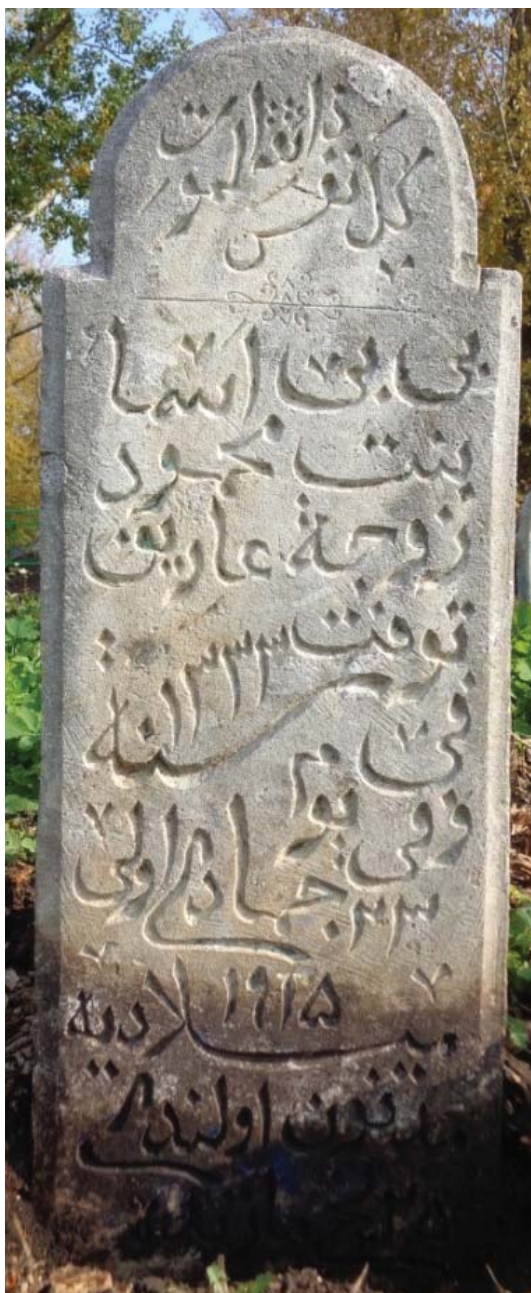 كل نفس ذائقة الموت
بى بى اسما
بنت محمود
زوجة عارين
توفت
فى سنة ١٣٣٣
وفى يوم
٢٣ جمادى اولى
١٩١٥
ميلادية
مدفون اولندى